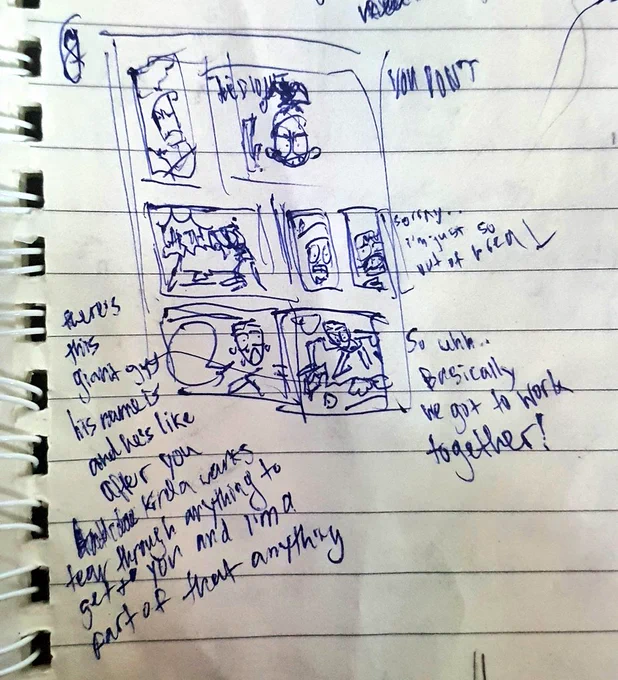 8
YOU DON'T
sorry..
i'm just so
out of brea
So uhh..
Basically
we got to work
together!
there's
this
giant guy
his name is
and he's like
after you
kinda wants
tear through anything to
get to you and i'm a
part of that anything